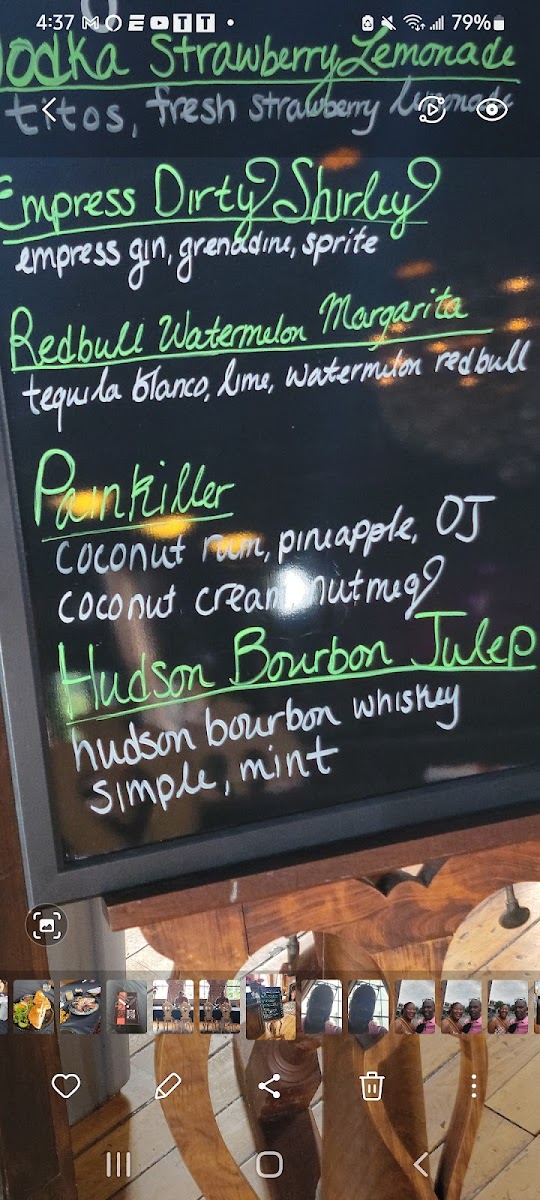 4:37 79%
Vodka Strawberry Lemonade
titos, fresh strawberry lemonade
Empress Dirty Shirley
empress gin, grenadine, sprite
Redbull Watermelon Margarita
tequila blanco, lime, watermelon redbull
Painkiller
coconut rum, pineapple, OJ
coconut cream, nutmeg
Hudson Bourbon Julep
hudson bourbon whiskey
simple, mint